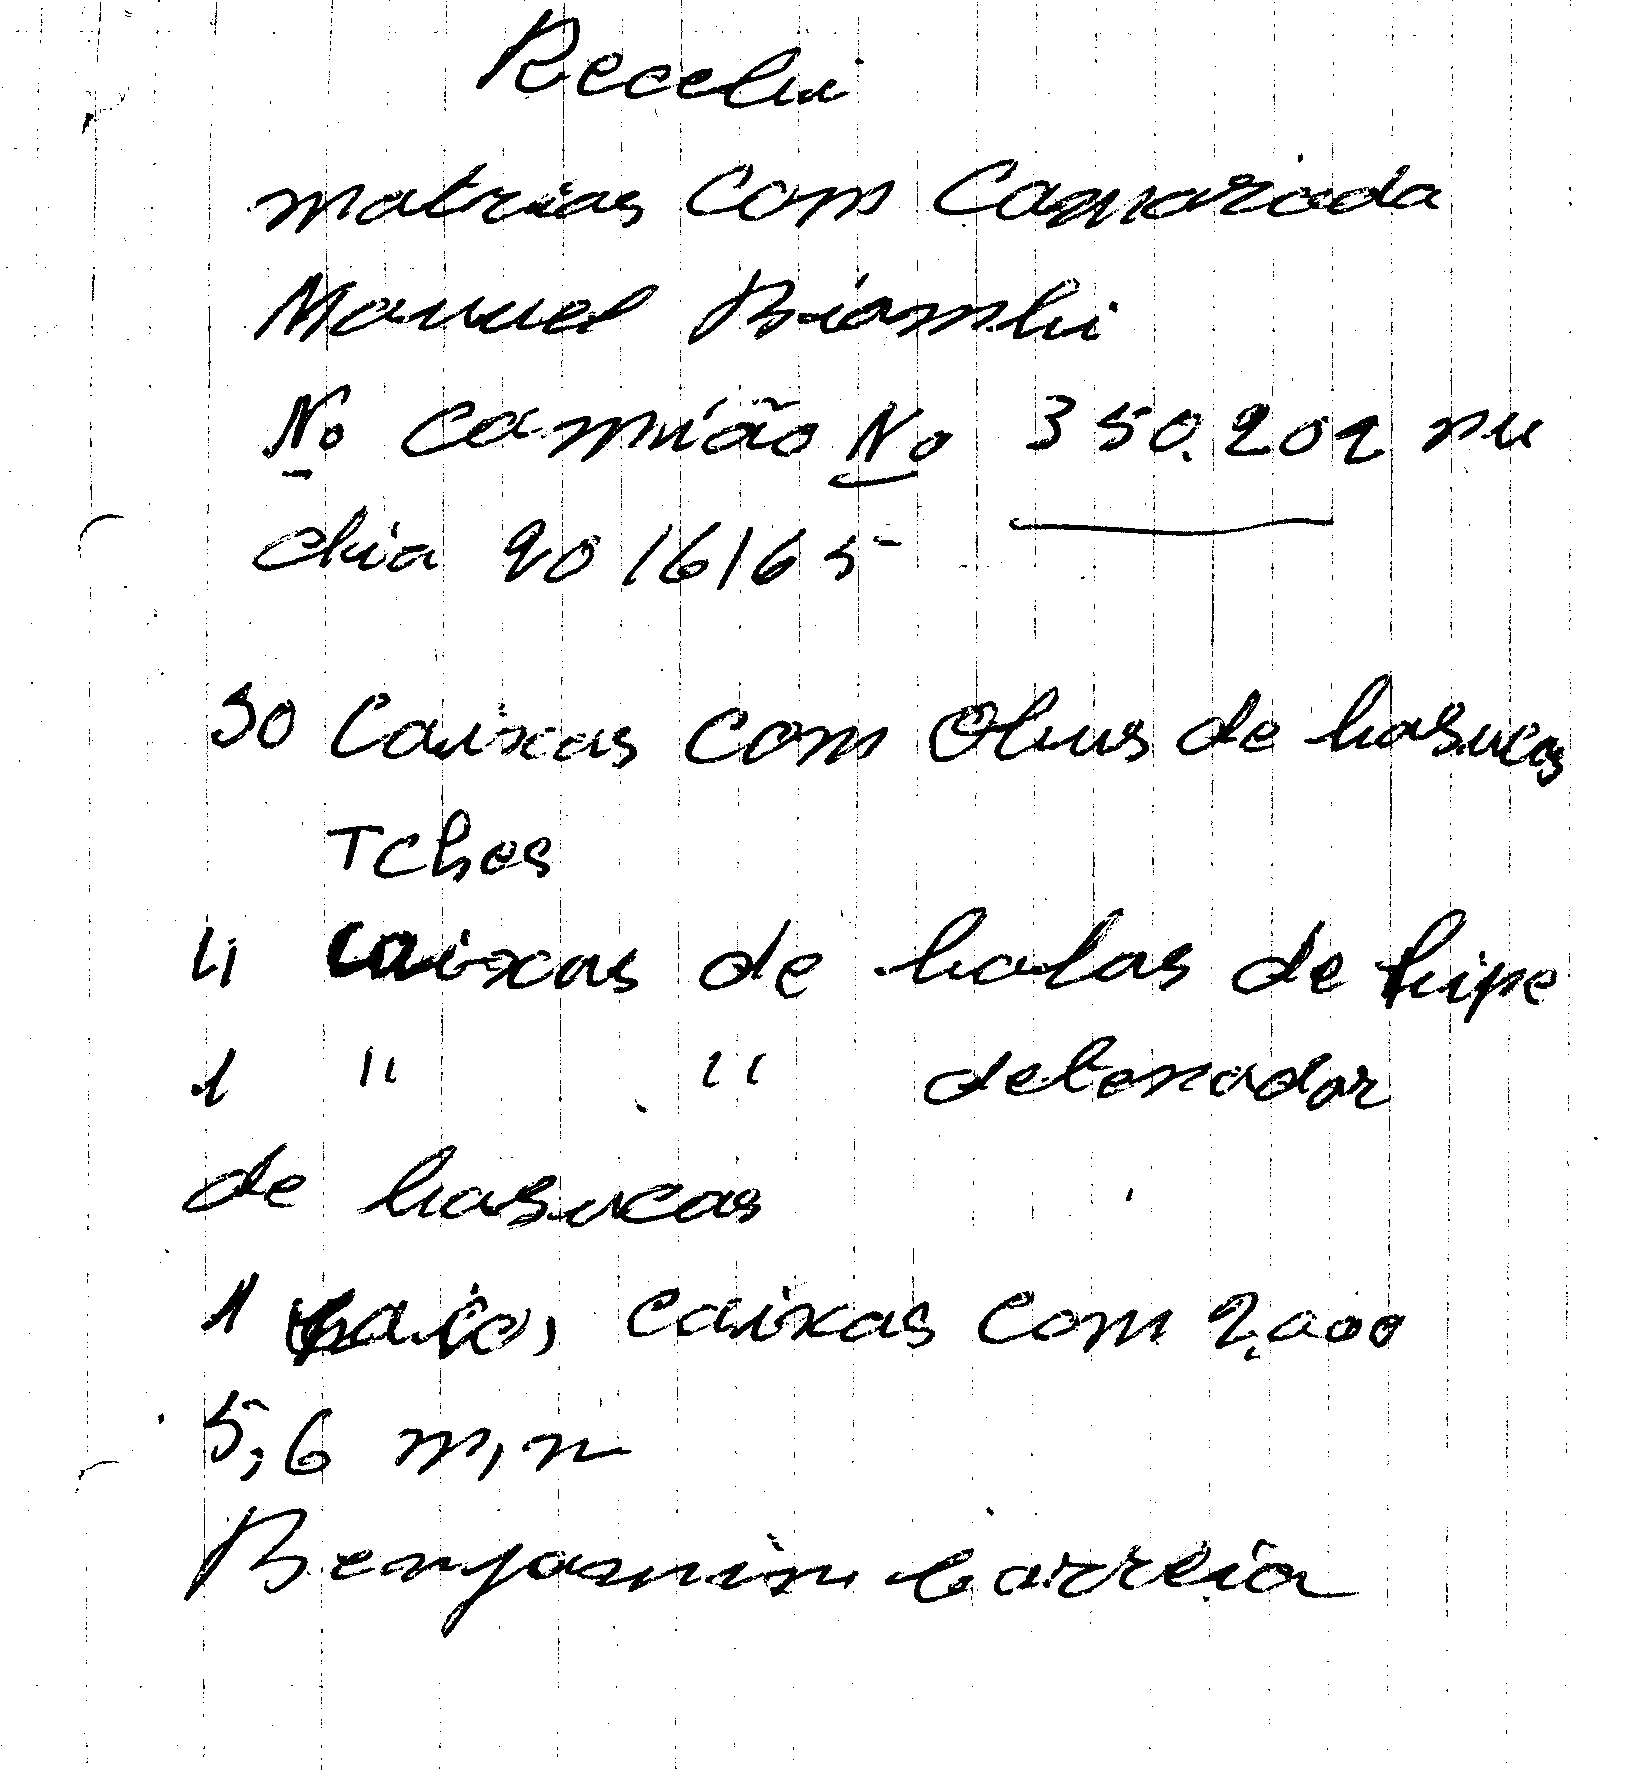 Recebi
matrias com Camarada
Manuel Biambi
No camião No 350.202 nu
dhia 20/6/65
50 Caixas com Obus de basucas
Tches
4 caixas de balas de hipe
1 " " detonador
de basucas
1 caixas com 2.000
5,6 m,n
Benjamim Carreia